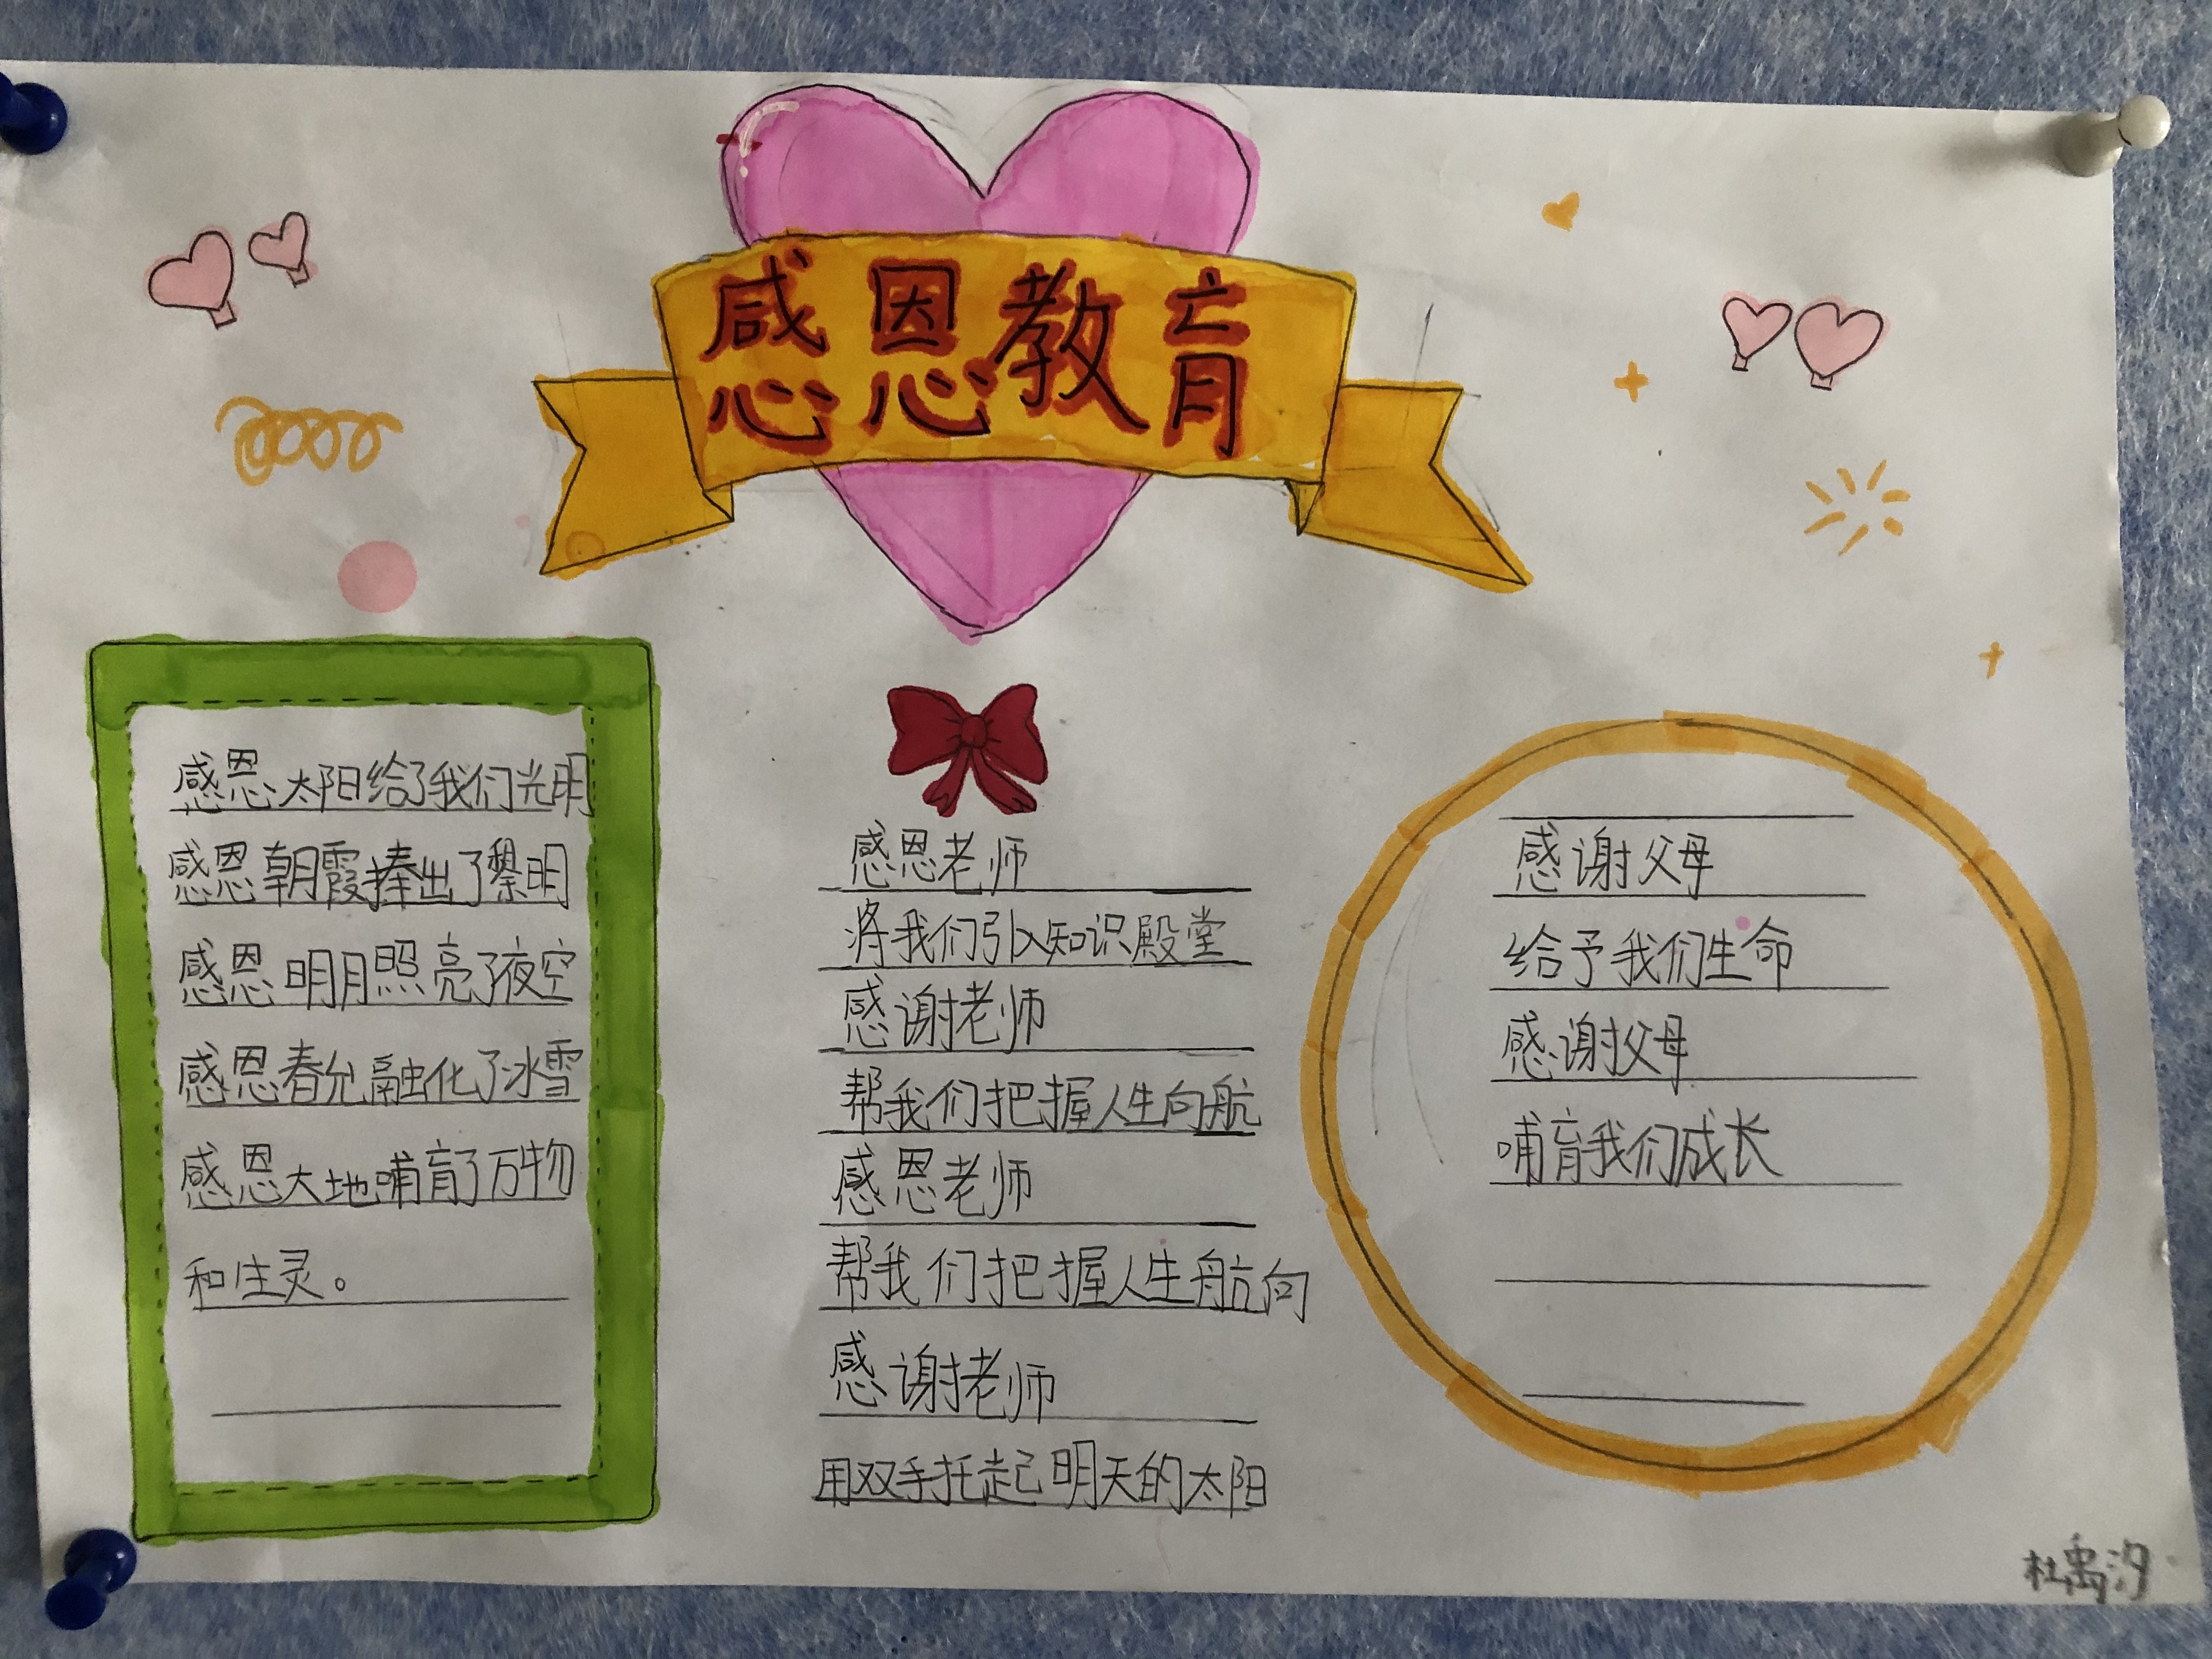 感恩教育
感恩太阳给了我们光明
感恩朝霞捧出了黎明
感恩明月照亮了夜空
感恩春光融化了冰雪
感恩大地哺育了万物
和生灵。
感恩老师
将我们引入知识殿堂
感谢老师
帮我们把握人生向航
感恩老师
帮我们把握人生航向
感谢老师
用双手托起明天的太阳
感谢父母
给予我们生命
感谢父母
哺育我们成长
杜禹汐